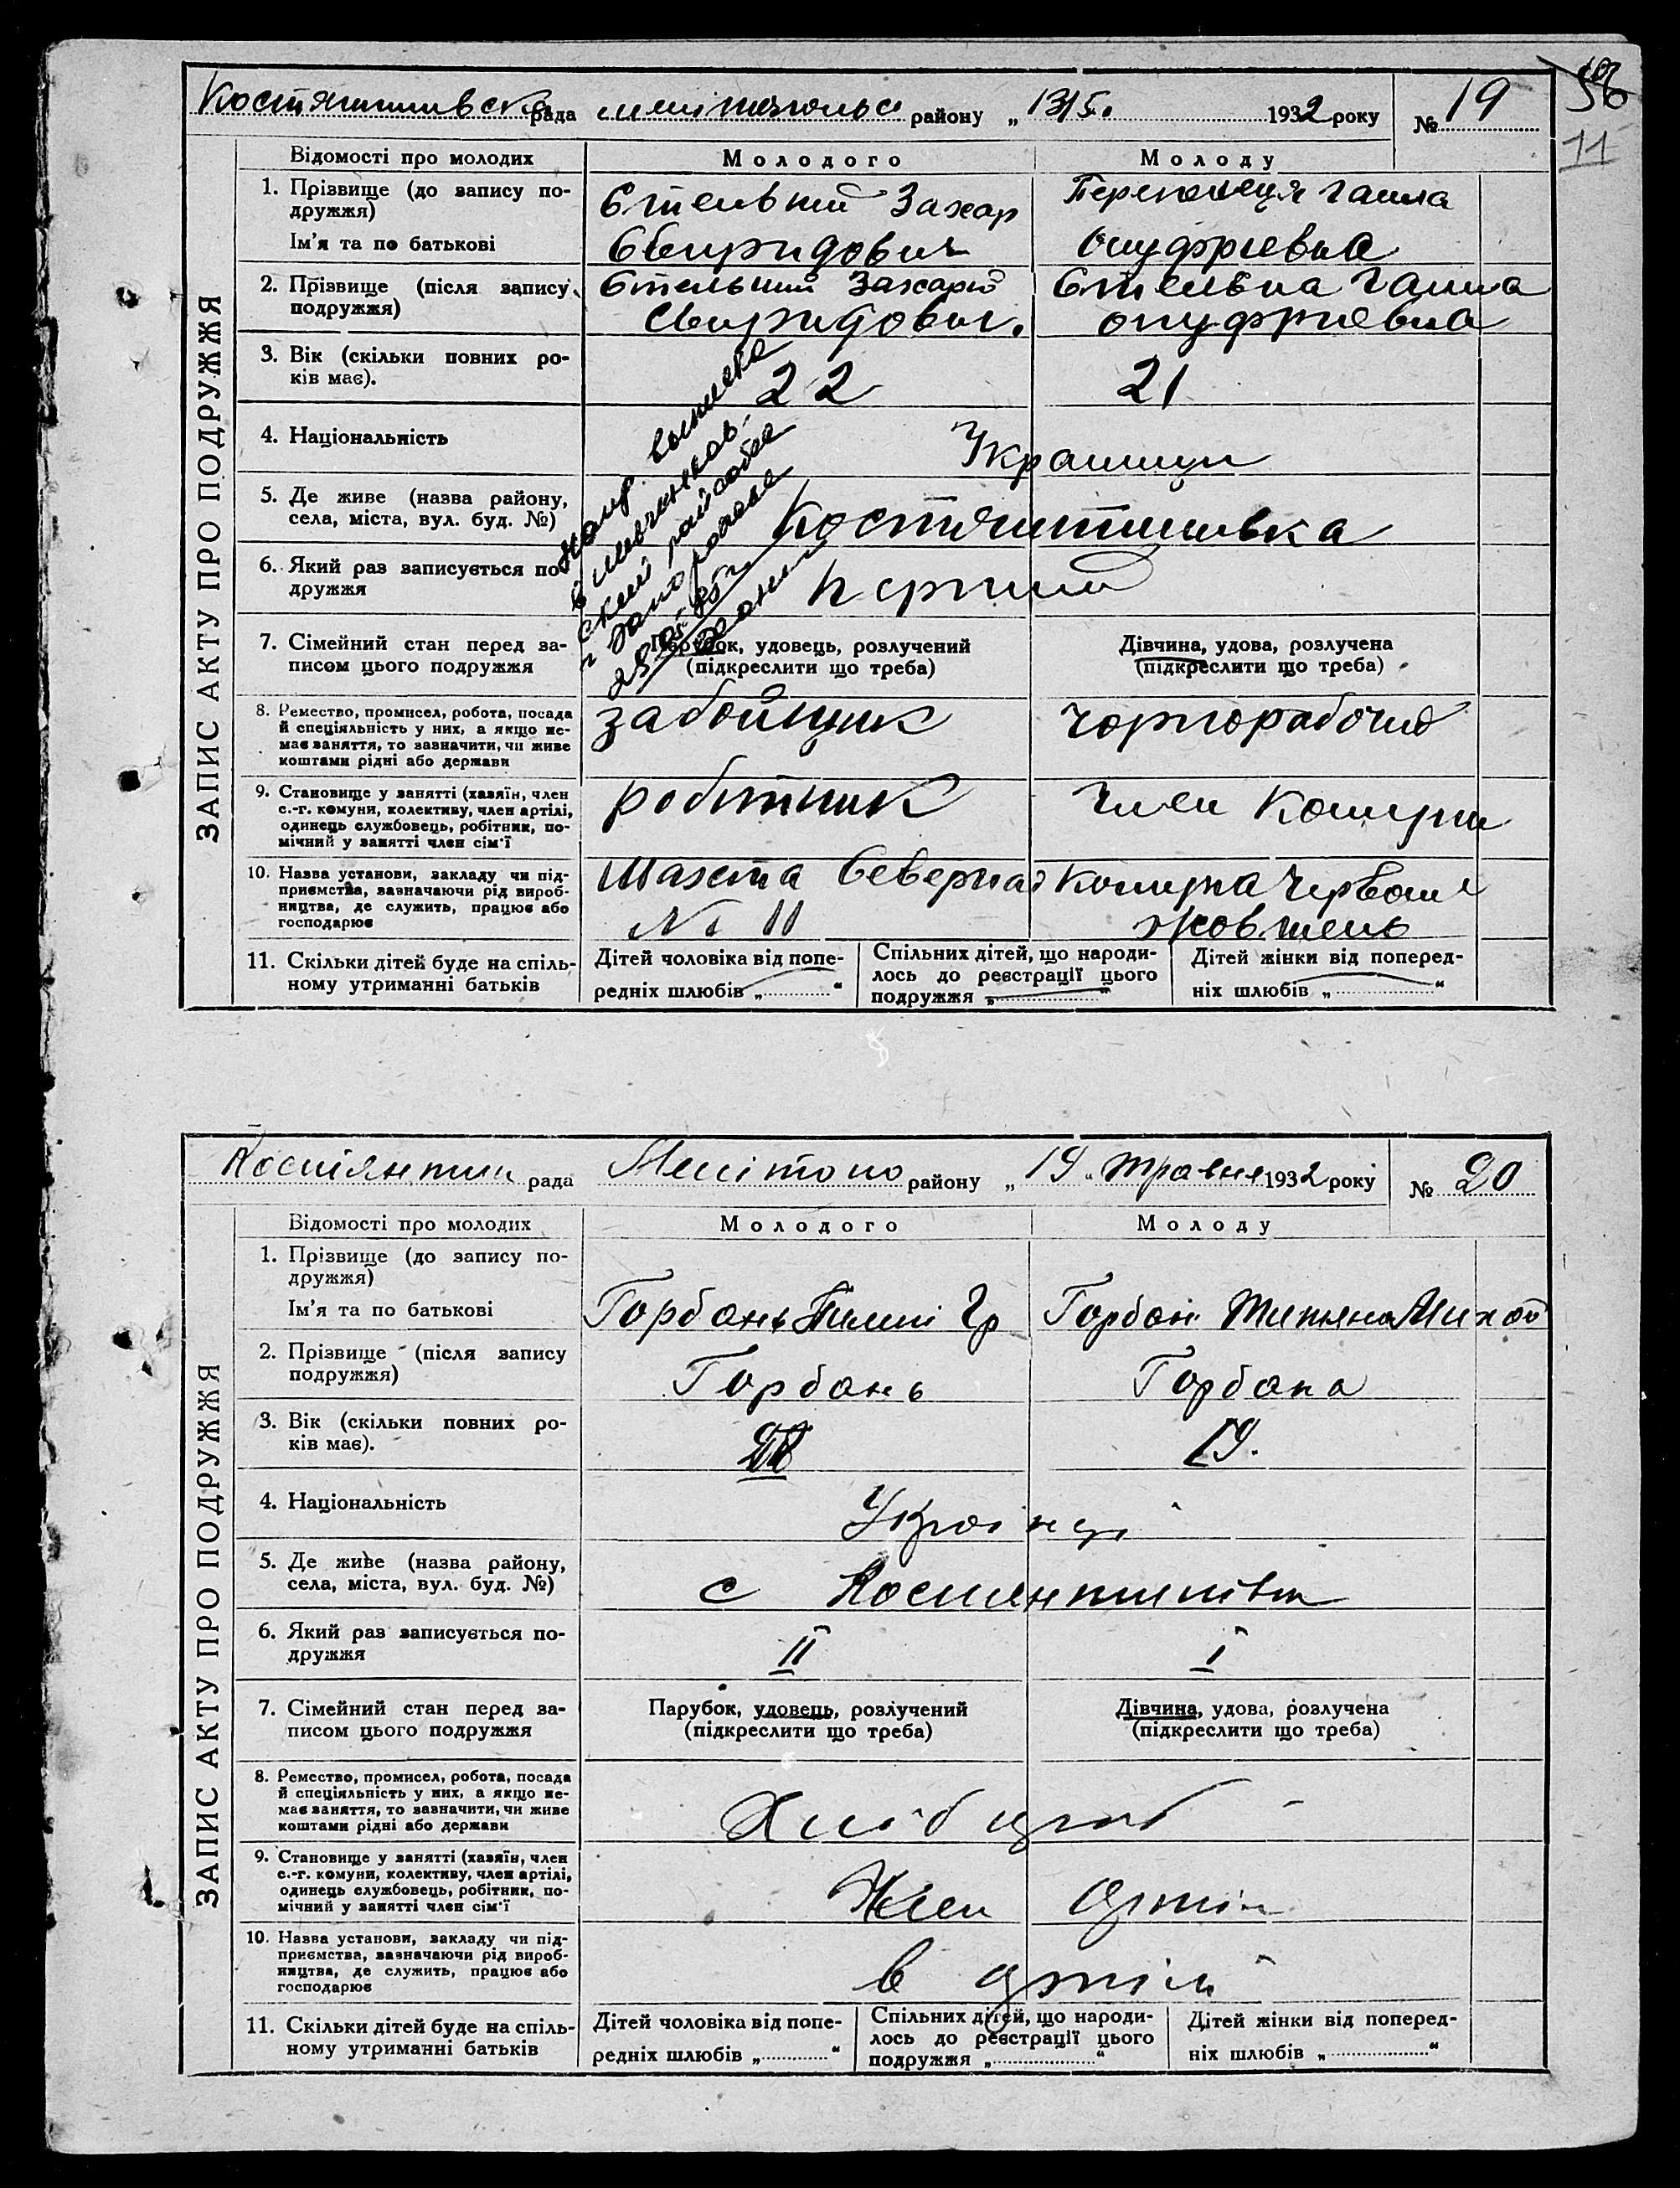 56
11
Костянтинівська рада мелітопольс району „ 13/5. 1932 року № 19
ЗАПИС АКТУ ПРО ПОДРУЖЖЯ
Відомості про молодих Молодого Молоду
1. Прізвище (до запису по-
дружжя)
Ім'я та по батькові
Стельний Захар
Свиридович
Ганна
Онуфриевна
2. Прізвище (після запису
подружжя)
Стельний Захарій
Свиридович.
Стельна Ганна
онуфриевна
3. Вік (скільки повних ро-
ків має).
22 21
4. Національність
Украинци
5. Де живе (назва району,
села, міста, вул. буд. №)
Костянтинивка
6. Який раз записується по-
дружжя
первий
7. Сімейний стан перед за-
писом цього подружжя
Парубок, удовець, розлучений
(підкреслити що треба)
Дівчина, удова, розлучена
(підкреслити що треба)
8. Ремество, промисел, робота, посада
й спеціяльність у них, а якщо не-
має заняття, то зазначити, чи живе
коштами рідні або держави
забойщик чорнорабочий
9. Становище у занятті (хазяїн, член
с.-г. комуни, колективу, член артілі,
одинець службовець, робітник, по-
мічний у занятті член сім'ї
робітник член комуни
10. Назва установи, закладу чи під-
приємства, зазначаючи рід вироб-
ництва, де служить, працює або
господарює
Шахта Северная
№ 11
комуна Червоний
жовтень
11. Скільки дітей буде на спіль-
ному утриманні батьків
Дітей чоловіка від попе-
редніх шлюбів „ “
Спільних дітей, що народи-
лось до реєстрації цього
подружжя „ “
Дітей жінки від поперед-
ніх шлюбів „ “
Костянтин рада Меліто по району „ 19 „ травня 1932 року № 20
ЗАПИС АКТУ ПРО ПОДРУЖЖЯ
Відомості про молодих Молодого Молоду
1. Прізвище (до запису по-
дружжя)
Ім'я та по батькові
Горбань Гр Горбан Титяна Михай
2. Прізвище (після запису
подружжя)
Горбань Горбана
3. Вік (скільки повних ро-
ків має).
19.
4. Національність
Українці
5. Де живе (назва району,
села, міста, вул. буд. №)
с Костянтинівка
6. Який раз записується по-
дружжя
II I
7. Сімейний стан перед за-
писом цього подружжя
Парубок, удовець, розлучений
(підкреслити що треба)
Дівчина, удова, розлучена
(підкреслити що треба)
8. Ремество, промисел, робота, посада
й спеціяльність у них, а якщо не-
має заняття, то зазначити, чи живе
коштами рідні або держави
9. Становище у занятті (хазяїн, член
с.-г. комуни, колективу, член артілі,
одинець службовець, робітник, по-
мічний у занятті член сім'ї
Член артіли
10. Назва установи, закладу чи під-
приємства, зазначаючи рід вироб-
ництва, де служить, працює або
господарює
в артіли
11. Скільки дітей буде на спіль-
ному утриманні батьків
Дітей чоловіка від попе-
редніх шлюбів „ “
Спільних дітей, що народи-
лось до реєстрації цього
подружжя „ “
Дітей жінки від поперед-
ніх шлюбів „ “